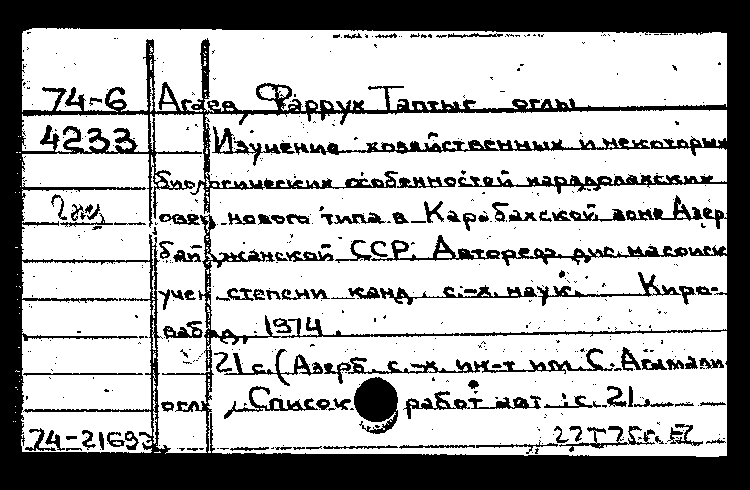 74-6 Агаев, Фаррух Таптыг оглы
4233 Изучение хозяйственных и некоторых
биологических особенностей карадолахских
2 экз овец нового типа в Карабахской зоне Азер
байджанской ССР. Автореф. дис. на соиск
учен степени канд. с.-х. наук. Киро-
вабад, 1974.
21 с. (Азерб. с.-х. ин-т им. С. Агамали
оглы). Список работ авт.: с. 21.
74-21692